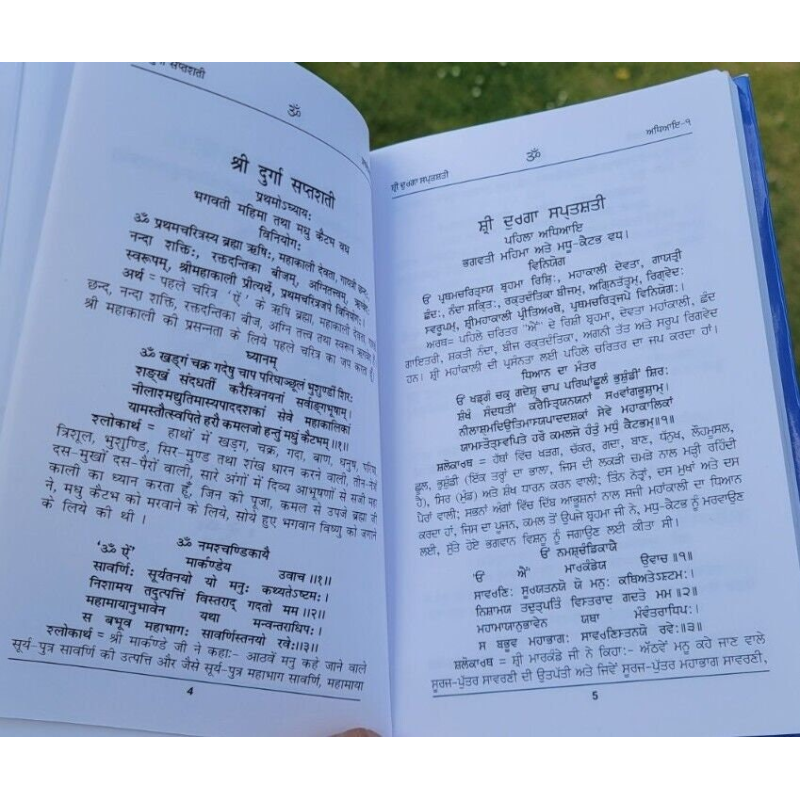 दुर्गा सप्तशती
ॐ
श्री दुर्गा सप्तशती
प्रथमोऽध्यायः
भगवती महिमा तथा मधु कैटभ वध
विनियोगः
ॐ प्रथमचरित्रस्य ब्रह्मा ऋषिः, महाकाली देवता, गायत्री छन्दः,
नन्दा शक्तिः, रक्तदन्तिका बीजम्, अग्निस्तत्त्वम्, ऋग्वेदः
स्वरूपम्, श्रीमहाकाली प्रीत्यर्थे, प्रथमचरित्रजपे विनियोगः।
अर्थ = पहले चरित्र 'ऐं' के ऋषि ब्रह्मा, महाकाली देवता, गायत्री
छन्द, नन्दा शक्ति, रक्तदन्तिका बीज, अग्नि तत्त्व तथा स्वरूप ऋग्वेद है।
श्री महाकाली की प्रसन्नता के लिये पहले चरित्र का जप करता हूँ।
ध्यानम्
ॐ खड्गं चक्र गदेषु चाप परिघाञ्छूलं भुशुण्डीं शिरः
शङ्खं संदधतीं करैस्त्रिनयनां सर्वाङ्गभूषाम्।
नीलाश्मद्युतिमास्यपाददशकां सेवे महाकालिकां
यामस्तौत्स्वपिते हरौ कमलजो हन्तुं मधुं कैटभम्॥१॥
श्लोकार्थ = हाथों में खड्ग, चक्र, गदा, बाण, धनुष, परिघ,
त्रिशूल, भुशुण्डि, सिर-मुण्ड तथा शंख धारन करने वाली, तीन-नेत्रों
दस-मुखों दस-पैरों वाली, सारे अंगों में दिव्य आभूषणों से सजी महा
काली का ध्यान करता हूँ, जिन की पूजा, कमल से उपजे ब्रह्मा जी
ने, मधु कैटभ को मरवाने के लिये, सोये हुए भगवान विष्णु को उगाने
के लिये की थी ।
ॐ नमश्चण्डिकायै
'ॐ ऐं मार्कण्डेय उवाच ॥१॥
सावर्णिः सूर्यतनयो यो मनुः कथ्यतेऽष्टमः।
निशामय तदुत्पत्तिं विस्तराद् गदतो मम ॥२॥
महामायानुभावेन यथा मन्वन्तराधिपः।
स बभूव महाभागः सावर्णिस्तनयो रवेः॥३॥
श्लोकार्थ = श्री मार्कण्डे जी ने कहाः- आठवें मनु कहे जाने वाले
सूर्य-पुत्र सावर्णि की उत्पत्ति और जैसे सूर्य-पुत्र महाभाग सावर्णि, महामाया
4
ਸ਼੍ਰੀ ਦੁਰਗਾ ਸਪ੍ਤਸ਼ਤੀ
ॐ
ਅਧਿਆਇ-੧
ਸ਼੍ਰੀ ਦੁਰਗਾ ਸਪ੍ਤਸ਼ਤੀ
ਪਹਿਲਾ ਅਧਿਆਇ
ਭਗਵਤੀ ਮਹਿਮਾ ਅਤੇ ਮਧੂ-ਕੈਟਭ ਵਧ।
ਵਿਨਿਯੋਗ
ਓਂ ਪ੍ਰਥਮਚਰਿਤ੍ਰਸ੍ਯ ਬ੍ਰਹਮਾ ਰਿਸ਼ਿਃ, ਮਹਾਕਾਲੀ ਦੇਵਤਾ, ਗਾਯਤ੍ਰੀ
ਛੰਦਃ, ਨੰਦਾ ਸ਼ਕਤਿਃ, ਰਕ੍ਤਦੰਤਿਕਾ ਬੀਜਮ੍, ਅਗਨਿਤੱਤ੍ਵਮ੍, ਰਿਗ੍ਵੇਦਃ
ਸ੍ਵਰੂਪਮ੍, ਸ਼੍ਰੀਮਹਾਕਾਲੀ ਪ੍ਰੀਤਿਅਰਥੇ, ਪ੍ਰਥਮਚਰਿਤ੍ਰਜਪੇ ਵਿਨਿਯੋਗਃ।
ਅਰਥ= ਪਹਿਲੇ ਚਰਿਤਰ "ਐਂ" ਦੇ ਰਿਸ਼ੀ ਬ੍ਰਹਮਾ, ਦੇਵਤਾ ਮਹਾਂਕਾਲੀ, ਛੰਦ
ਗਾਇਤਰੀ, ਸ਼ਕਤੀ ਨੰਦਾ, ਬੀਜ ਰਕ੍ਤਦੰਤਿਕਾ, ਅਗਨੀ ਤੱਤ ਅਤੇ ਸਰੂਪ ਰਿਗਵੇਦ
ਹਨ। ਸ਼੍ਰੀ ਮਹਾਂਕਾਲੀ ਦੀ ਪ੍ਰਸੰਨਤਾ ਲਈ ਪਹਿਲੇ ਚਰਿਤਰ ਦਾ ਜਪ ਕਰਦਾ ਹਾਂ।
ਧਿਆਨ ਦਾ ਮੰਤਰ
ਓਂ ਖੜਗੰ ਚਕ੍ਰ ਗਦੇਸ਼ੁ ਚਾਪ ਪਰਿਘਾਂਛੂਲੰ ਭੁਸ਼ੁੰਡੀਂ ਸ਼ਿਰਃ
ਸ਼ੰਖੰ ਸੰਦਧਤੀਂ ਕਰੈਸਤ੍ਰਿਨਯਨਾਂ ਸਰਵਾਂਗਭੂਸ਼ਾਮ੍।
ਨੀਲਾਸ਼ਮਦਿਉਤਿਮਾਸਯਪਾਦਦਸ਼ਕਾਂ ਸੇਵੇ ਮਹਾਕਾਲਿਕਾਂ
ਯਾਮਸਤੌਤਸ੍ਵਪਿਤੇ ਹਰੌ ਕਮਲਜੋ ਹੰਤੁੰ ਮਧੁੰ ਕੈਟਭਮ੍॥੧॥
ਸ਼ਲੋਕਾਰਥ = ਹੱਥਾਂ ਵਿੱਚ ਖੜਗ, ਚੱਕਰ, ਗਦਾ, ਬਾਣ, ਧੱਨੁਖ, ਲੌਹਮੂਸਲ,
ਛੂਲ, ਭੁਸ਼ੁੰਡੀ (ਇੱਕ ਤਰ੍ਹਾਂ ਦਾ ਭਾਲਾ, ਜਿਸ ਦੀ ਲਕੜੀ ਚਮੜੇ ਨਾਲ ਮੜ੍ਹੀ ਰਹਿੰਦੀ
ਹੈ), ਸਿਰ (ਮੁੰਡ) ਅਤੇ ਸ਼ੰਖ ਧਾਰਨ ਕਰਨ ਵਾਲੀ; ਤਿੰਨ ਨੇਤ੍ਰਾਂ, ਦਸ ਮੁਖਾਂ ਅਤੇ ਦਸ
ਪੈਰਾਂ ਵਾਲੀ; ਸਭਨਾਂ ਅੰਗਾਂ ਵਿੱਚ ਦਿੱਬ ਆਭੂਸ਼ਨਾਂ ਨਾਲ ਸਜੀ ਮਹਾਂਕਾਲੀ ਦਾ ਧਿਆਨ
ਕਰਦਾ ਹਾਂ, ਜਿਸ ਦਾ ਪੂਜਨ, ਕਮਲ ਤੋਂ ਉਪਜੇ ਬ੍ਰਹਮਾ ਜੀ ਨੇ, ਮਧੂ-ਕੈਟਭ ਨੂੰ ਮਰਵਾਉਣ
ਲਈ, ਸੁੱਤੇ ਹੋਏ ਭਗਵਾਨ ਵਿਸ਼ਨੂ ਨੂੰ ਜਗਾਉਣ ਲਈ ਕੀਤਾ ਸੀ।
ਓਂ ਨਮਸ਼੍ਚੰਡਿਕਾਯੈ
'ਓਂ ਐਂ ਮਾਰਕੰਡੇਯ ਉਵਾਚ ॥੧॥
ਸਾਵਰਣਿਃ ਸੂਰਯਤਨਯੋ ਯੋ ਮਨੁਃ ਕਥਿਅਤੇऽਸ਼ਟਮਃ।
ਨਿਸ਼ਾਮਯ ਤਦੁਤ੍ਪਤਿੰ ਵਿਸਤਰਾਦ ਗਦਤੋ ਮਮ ॥੨॥
ਮਹਾਮਾਯਾਨੁਭਾਵੇਨ ਯਥਾ ਮੰਵੰਤਰਾਧਿਪਃ।
ਸ ਬਭੂਵ ਮਹਾਭਾਗਃ ਸਾਵਰਣਿਸਤਨਯੋ ਰਵੇਃ॥੩॥
ਸ਼ਲੋਕਾਰਥ = ਸ਼੍ਰੀ ਮਾਰਕੰਡੇ ਜੀ ਨੇ ਕਿਹਾ:- ਅੱਠਵੇਂ ਮਨੂ ਕਹੇ ਜਾਣ ਵਾਲੇ
ਸੂਰਜ-ਪੁੱਤਰ ਸਾਵਰਣੀ ਦੀ ਉਤਪੱਤੀ ਅਤੇ ਜਿਵੇਂ ਸੂਰਜ-ਪੁੱਤਰ ਮਹਾਭਾਗ ਸਾਵਰਣੀ,
5